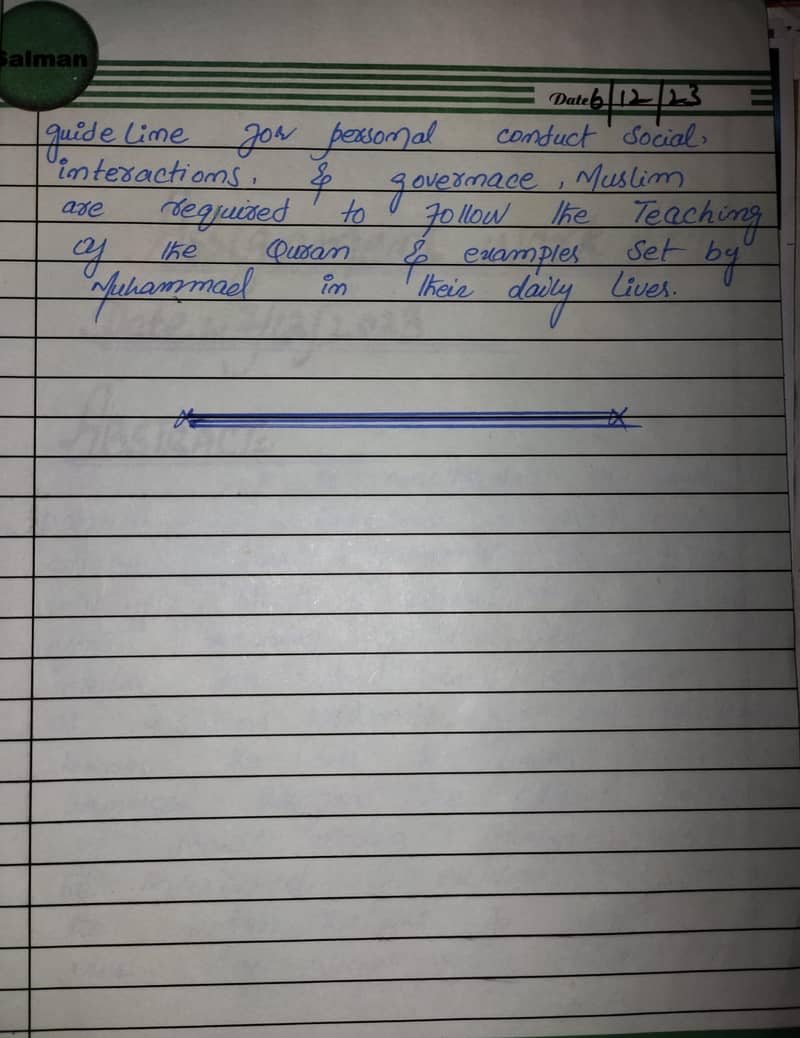 Salman
Date 6/12/23
guide lime for personal conduct social,
interactions, & governace, Muslim
are required to follow the Teaching
of the Quran & examples set by
Muhammad in their daily lives.